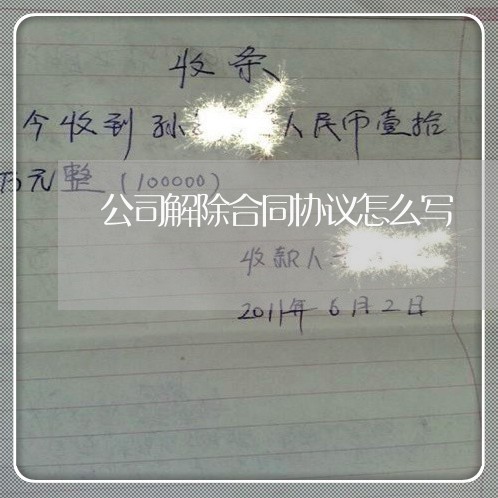 收条
今收到孙 人民币壹拾
万元整(100000)
公司解除合同协议怎么写
收款人
2011年6月2日